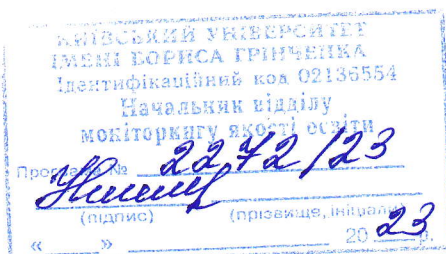 КИЇВСЬКИЙ УНІВЕРСИТЕТ
ІМЕНІ БОРИСА ГРІНЧЕНКА
Ідентифікаційний код 02136554
Начальник відділу
моніторингу якості освіти
Програма № 2272/23
(підпис) (прізвище, ініціали)
« » 20 23 р.